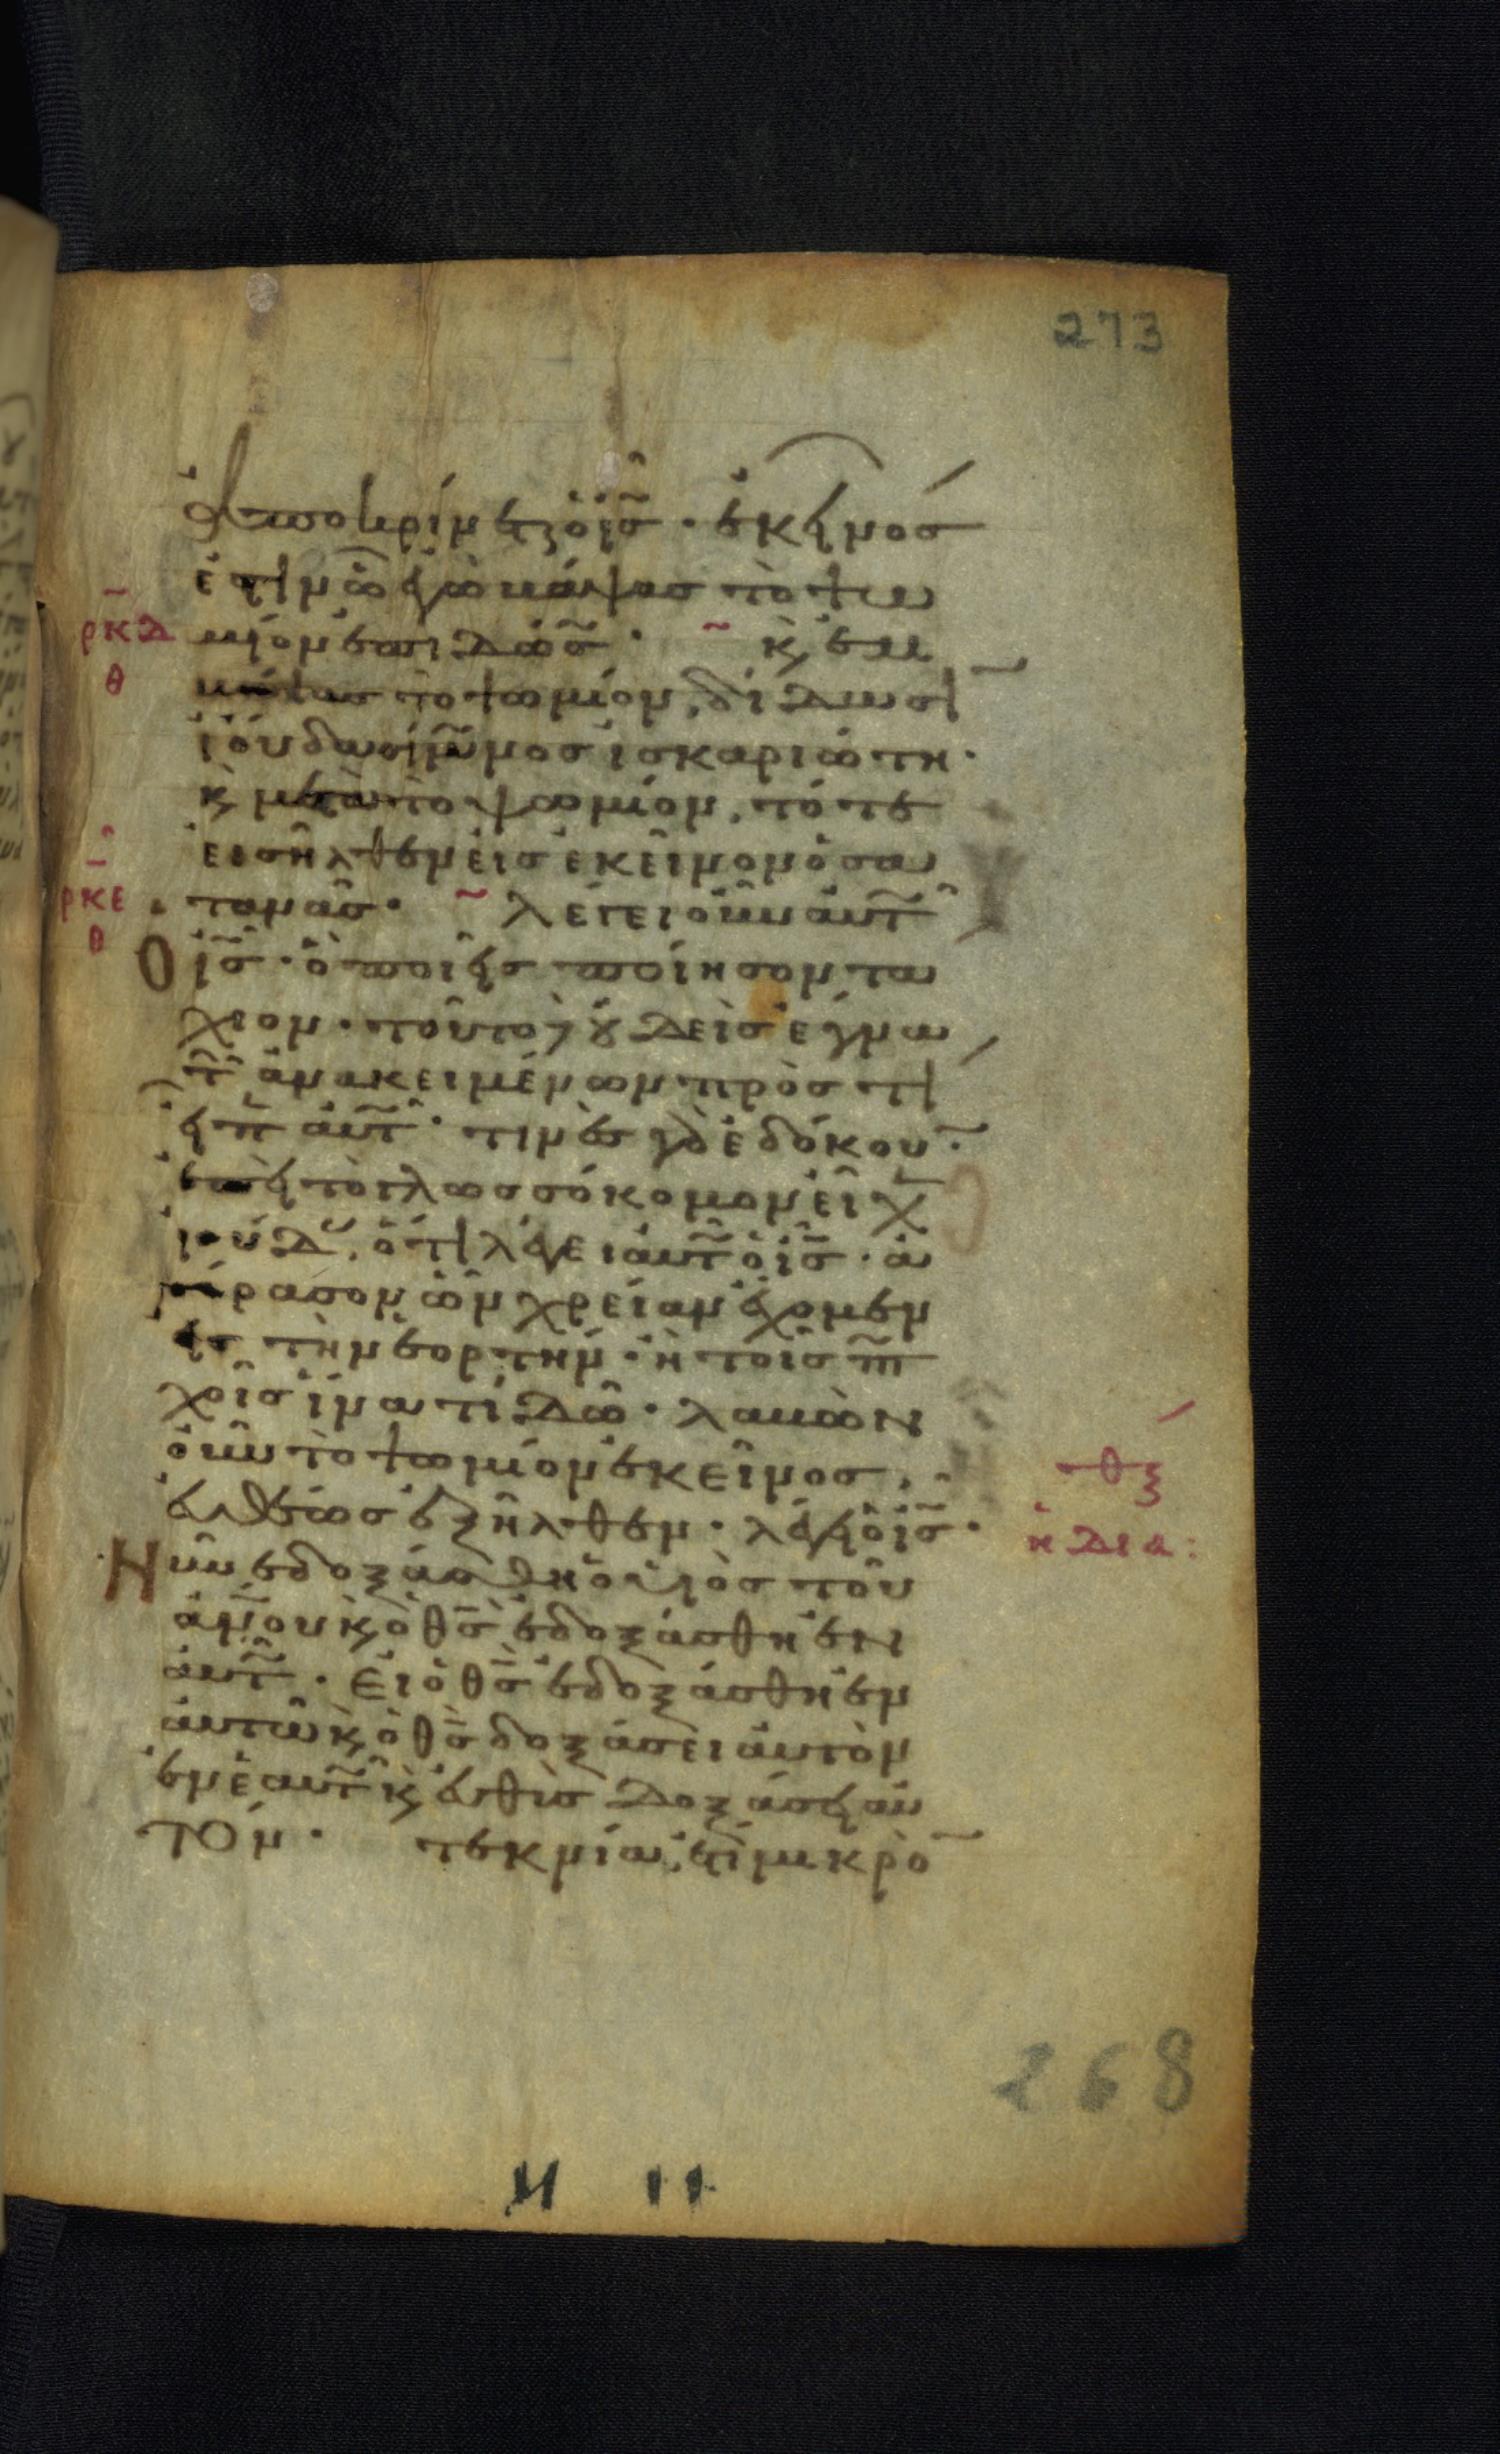 273
ἀποκρίνεται ὁ ις̅ · ἐκεῖνος
ἐστὶν ὧ ἐγὼ βάψας τὸ ψω
ρκδ μίον ἐπιδώσω · κ̀ ἐμ
θ βάψας τὸ ψωμίον, δίδωσιν
ἰούδα σίμωνος ἰσκαριώτη ·
κ̀ μετὰ τὸ ψωμίον, τότε
εἰσῆλθεν εἰς ἐκεῖνον ὁ σα
ρκε τανᾶς · λέγει οὖν αὐτῶ
θ
Ὁ ις̅ · ὃ ποιεῖς ποίησον τά
χιον · τοῦτο δὲ οὐδεὶς ἔγνω
τῶν ἀνακειμένων πρὸς τί
εἶπεν αὐτῶ · τινὲς γὰρ ἐδόκουν ·
ἐπεὶ τὸ γλωσσόκομον εἶχεν
ἰούδας, ὅτι λέγει αὐτῶ ὁ ις̅ · ἀ
γόρασον ὧν χρείαν ἔχομεν
εἰς τὴν ἑορτήν · ἢ τοῖς πτω
χοῖς ἵνα τί δῶ · λαβὼν
οὖν τὸ ψωμίον ἐκεῖνος,
εὐθέως ἐξῆλθεν · λέγει ὁ ις̅ ·
Νῦν ἐδοξάσθη ὁ υἱὸς τοῦ
ἀνου κ̀ ὁ θς̅ ἐδοξάσθη ἐν
αὐτῶ · Εἰ ὁ θς̅ ἐδοξάσθη ἐν
αὐτῶ κ̀ ὁ θς̅ δοξάσει αὐτὸν
ἐν ἑαυτῶ κ̀ εὐθὺς δοξάσει αὐ
τόν · τεκνία, ἔτι μικρὸν
268